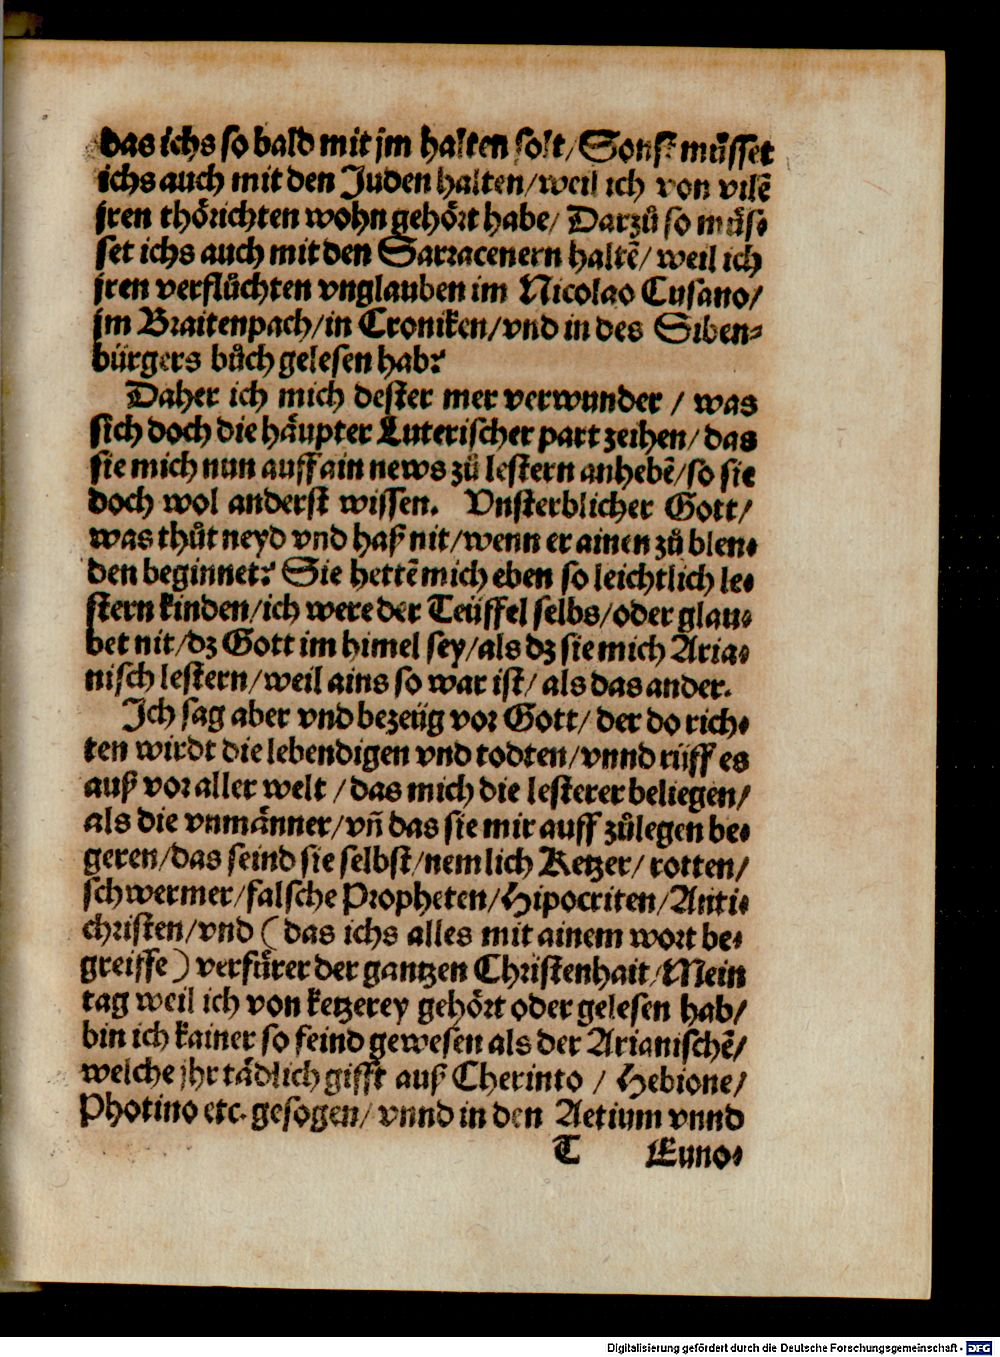 das ichs so bald mit jm halten solt/ Sonst müsset
ichs auch mit den Juden halten/ weil ich von vilẽ
jren thörichten wohn gehört habe/ Darzů so müs⸗
set ichs auch mit den Sarracenern haltẽ/ weil ich
jren verflůchten vnglauben im Nicolao Cusano/
jm Braitenpach/ in Croniken/ vnd in des Siben⸗
bürgers bůch gelesen hab?
Daher ich mich dester mer verwunder / was
sich doch die häupter Luterischer part zeihen/ das
sie mich nun auff ain news zů lestern anhebẽ/ so sie
doch wol anderst wissen. Vnsterblicher Gott/
was thůt neyd vnd haß nit/ wenn er ainen zů blen⸗
den beginnet? Sie hettẽ mich eben so leichtlich le⸗
stern kinden/ ich were der Teüffel selbs/ oder glau⸗
bet nit/ dz Gott im himel sey/ als dz sie mich Aria⸗
nisch lestern/ weil ains so war ist/ als das ander.
Ich sag aber vnd bezeüg vor Gott/ der do rich⸗
ten wirdt die lebendigen vnd todten/ vnnd rüff es
auß vor aller welt / das mich die lesterer beliegen/
als die vnmänner/ vñ das sie mir auff zůlegen be⸗
geren/ das seind sie selbst/ nemlich Ketzer/ rotten/
schwermer/ falsche Propheten/ Hipocriten/ Anti⸗
christen/ vnd ( das ichs alles mit ainem wort be⸗
greiffe ) verfürer der gantzen Christenhait/ Mein
tag weil ich von ketzerey gehört oder gelesen hab/
bin ich kainer so feind gewesen als der Arianischẽ/
welche jhr tädlich gifft auß Cherinto / Hebione/
Photino etc. gesogen/ vnnd in den Aetium vnnd
T Euno⸗
Digitalisierung gefördert durch die Deutsche Forschungsgemeinschaft - DFG